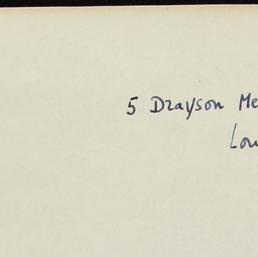 5 Drayson Me
Lon